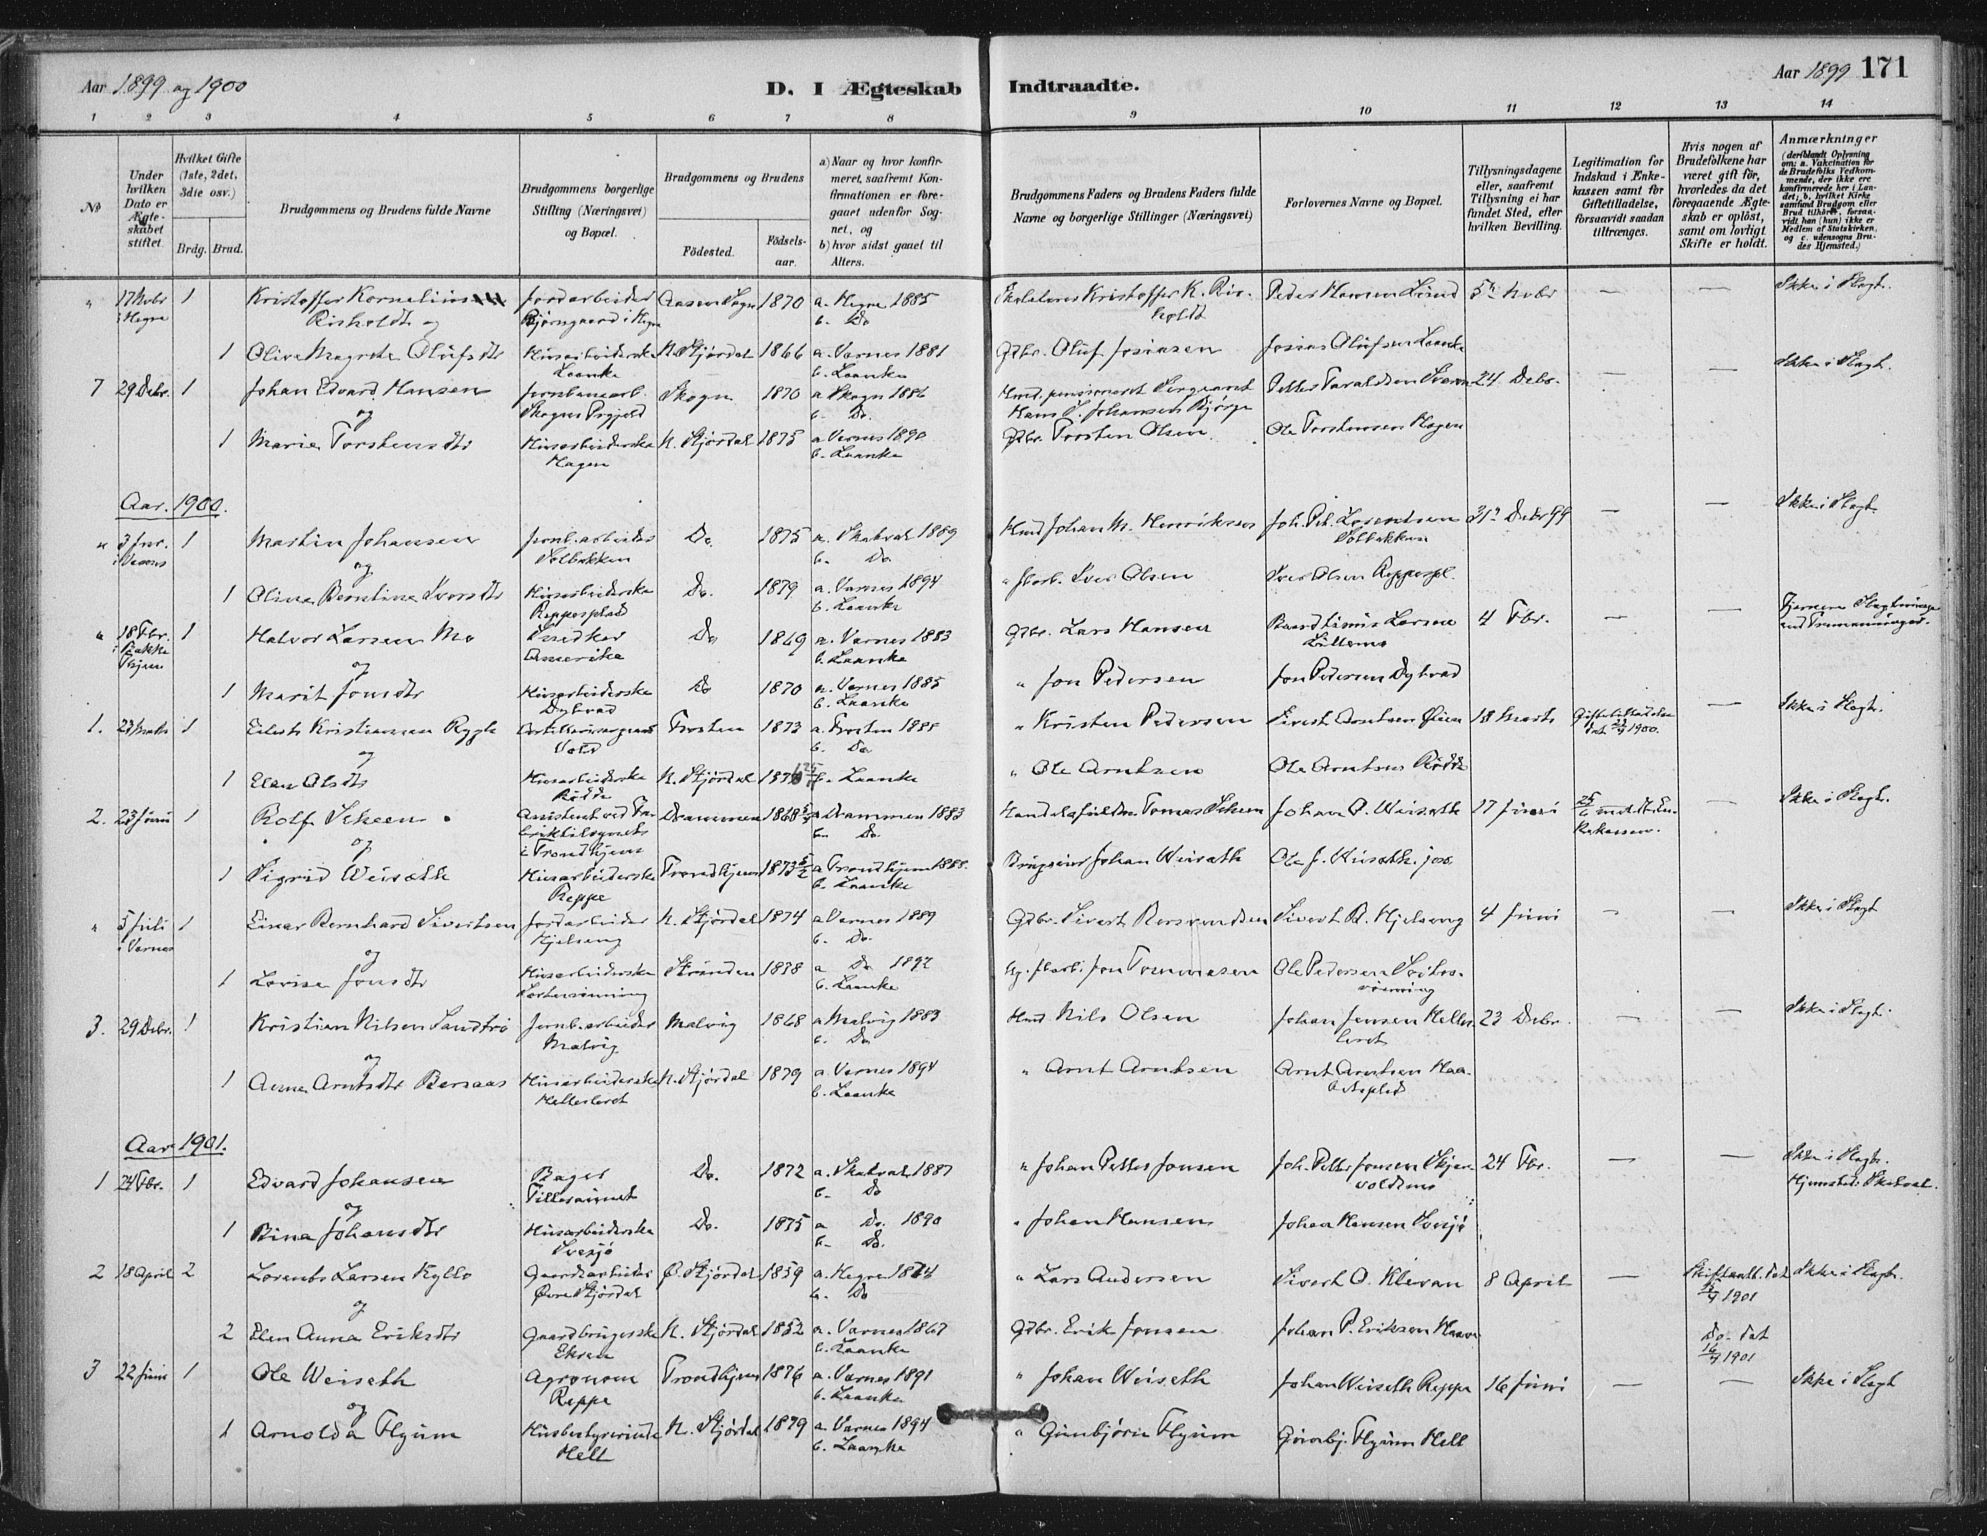 Aar 1899 og 1900
D. I Ægteskab Indtraadte.
Aar 1899 171
1 2 3 4 5 6 7 8 9 10 11 12 13 14
No
Under hvilken Dato er Ægteskabet stiftet.
Hvilket Gifte (1ste, 2det, 3die osv.)
Brdg. Brud.
Brudgommens og Brudens fulde Navne
Brudgommens borgerlige Stilling (Næringsvei) og Bopæl.
Brudgommens og Brudens
Födested. Födselsaar.
a) Naar og hvor konfirmeret, saafremt Konfirmationen er foregaaet udenfor Sognet, og
b) hvor sidst gaaet til Alters.
Brudgommens Faders og Brudens Faders fulde Navne og borgerlige Stillinger (Næringsvei)
Forlovernes Navne og Bopæl.
Tillysningsdagene eller, saafremt Tillysning ei har fundet Sted, efter hvilken Bevilling.
Legitimation for Indskud i Enkekassen samt for Giftetilladelse, forsaavidt saadan tiltrænges.
Hvis nogen af Brudefolkene har været gift för, hvorledes da det foregaaende Ægteskab er oplöst, samt om lovligt Skifte er holdt.
Anmærkninger (deriblandt Oplysning om: a. Vakcination for de Brudefolks Vedkommende, der ikke ere konfirmerede her i Landet; b. hvilket Kirkesamfund Brudgom eller Brud tilhörer, forsaavidt han (hun) ikke er Medlem af Statskirken, og c. udensogns Brudes Hjemsted.)
" 17 Nvbr i Hegne 1 Kristoffer Kornelius Risholdt og Jordarbeider Bjørngaard i Hegne Aasen Sogn 1870 a. Hegne 1885 b. Do Kristoffer K. Risholdt Peder Hansen Lund 5te Nvbr — — Ikke i Slagt.
1 Oline Magrete Olufsdtr Husarbeiderske Laanke N. Stjørdal 1866 a. Værnes 1881 b. Laanke Gbr. Oluf Josiasen Josias Olufsen Laanke
7 29 Debr. 1 Johan Edvard Hansen og Jernbanearb. Skogn Skogn 1870 a Skogn 1886 b. Do. Hmd. pensioneret Sergeant Hans J. Johansen Bjørge Petter Taraldsen 24 Debr. — — Ikke i Slagt.
1 Marie Torstensdtr Husarbeiderske Hagen N. Stjørdal 1875 a Værnes 1890 b. Laanke Gbr. Torsten Olsen Ole Torstensen Hagen
Aar 1900.
" 3 Jnr. i Værnes 1 Martin Johansen og Jernb.arbeider Solbakken Do. 1875 a. Skatval 1889 b. Do Hmd Johan M. Henriksen Joh. Pet. Lorentsen Solbakken 31te Debr 99 — — Ikke i Slagt.
1 Oline Berntine Iversdtr Husarbeiderske Reppesplad Do. 1879 a. Værnes 1894 b. Laanke Iver Olsen Iver Olsen Reppespl.
" 18 Fbr. i Bakke Thjem 1 Halvor Larsen Mo og Snedker Amerika Do 1869 a. Værnes 1883 b. Laanke Gbr. Lars Hansen Larsen Lillemo 4 Fbr. — —
1 Marit Jonsdtr Husarbeiderske Dybvad Do 1870 a. Værnes 1885 b. Laanke " Jon Pedersen Jon Pedersen Dybvad
1. 23 Marts 1 Kristiansen Rygh og Vold Frosten 1873 a. Frosten 1888 b. Do " Kristen Pedersen Sivert Arntsen Øien 18 Marts Giftetilladelse dat 1900. — Ikke i Slagt.
1 Elen Olsdtr Husarbeiderske Rødde N. Stjørdal 1876 b. Laanke " Ole Arntsen Ole Arntsen Rødde
2. 23 Juni 1 Rolf Scheen og Assistent ved Fabriktilsynet i Trondhjem Drammen 1868 a Drammen 1883 b. Do. Tomas Scheen Johan O. Weiseth 17 Juni — Ikke i Slagt.
1 Sigrid Weiseth Husarbeiderske Reppe Trondhjem 1873 a Trondhjem 1888. b. Laanke Brugseier Johan Weiseth Ole J. Weiseth
" 5 Juli i Værnes 1 Einar Bernhard Sivertsen og Jordarbeider Hjelseng N. Stjørdal 1874 a Værnes 1889 b. Do. Gbr. Sivert Bersvendsen Sivert B. Hjelseng 4 Juni — — Ikke i Slagt
1 Lovise Jonsdtr Husarbeiderske Strinden 1878 a Do 1892 b. Laanke Jon Tommasen Ole Pedersen
3. 29 Debr. 1 Kristian Nilsen Sandfrø og Jernb.arbeider Malvig Malvig 1868 a Malvig 1883 b. Do Hmd Nils Olsen Johan Jensen Helleleret 23 Debr. — — Ikke i Slagt.
1 Anna Arntsdtr Bersaas Husarbeiderske Helleleret N. Stjørdal 1879 a. Værnes 1894 b. Laanke " Arnt Arntsen Arnt Arntsen
Aar 1901.
1 24 Fbr. 1 Edvard Johansen og Bager Do. 1872 a. Skatval 1887 b. Do " Johan Petter Jonsen Joh. Petter Jonsen Skjervoldsmo 24 Fbr. — — Ikke i Slagt. Hjemsted: Skatval.
1 Bina Johansdtr Husarbeiderske Svesjø Do. 1875 a Do. 1890 b. Do. " Johan Hansen Johan Hansen Svesjø
2 18 April 2 Lorents Larsen Kyllo og Gaardsarbeider Øvre Stjørdal Ø. Stjørdal 1859 a. Hegre 1874 b. Do " Lars Andersen Sivert O. Klevan 8 April — Skifteatt. dat 1901 Ikke i Slagt.
2 Elen Anna Eriksdtr Gaardbrugerske Ekren N. Stjørdal 1852 a. Værnes 1867 b. Laanke Gbr. Erik Jonsen Johan P. Eriksen Do. dat 16/4 1901
3 22 Juni 1 Ole Weiseth og Agronom Reppe Trondhjem 1876 a. Værnes 1891 b. Laanke " Johan Weiseth Johan Weiseth Reppe 16 Juni — — Ikke i Slagt
1 Arnolda Flyum Husbestyrerinde Hell N. Stjørdal 1879 a. Værnes 1894 b. Laanke " Gunbjørn Flyum Gunbj. Flyum Hell